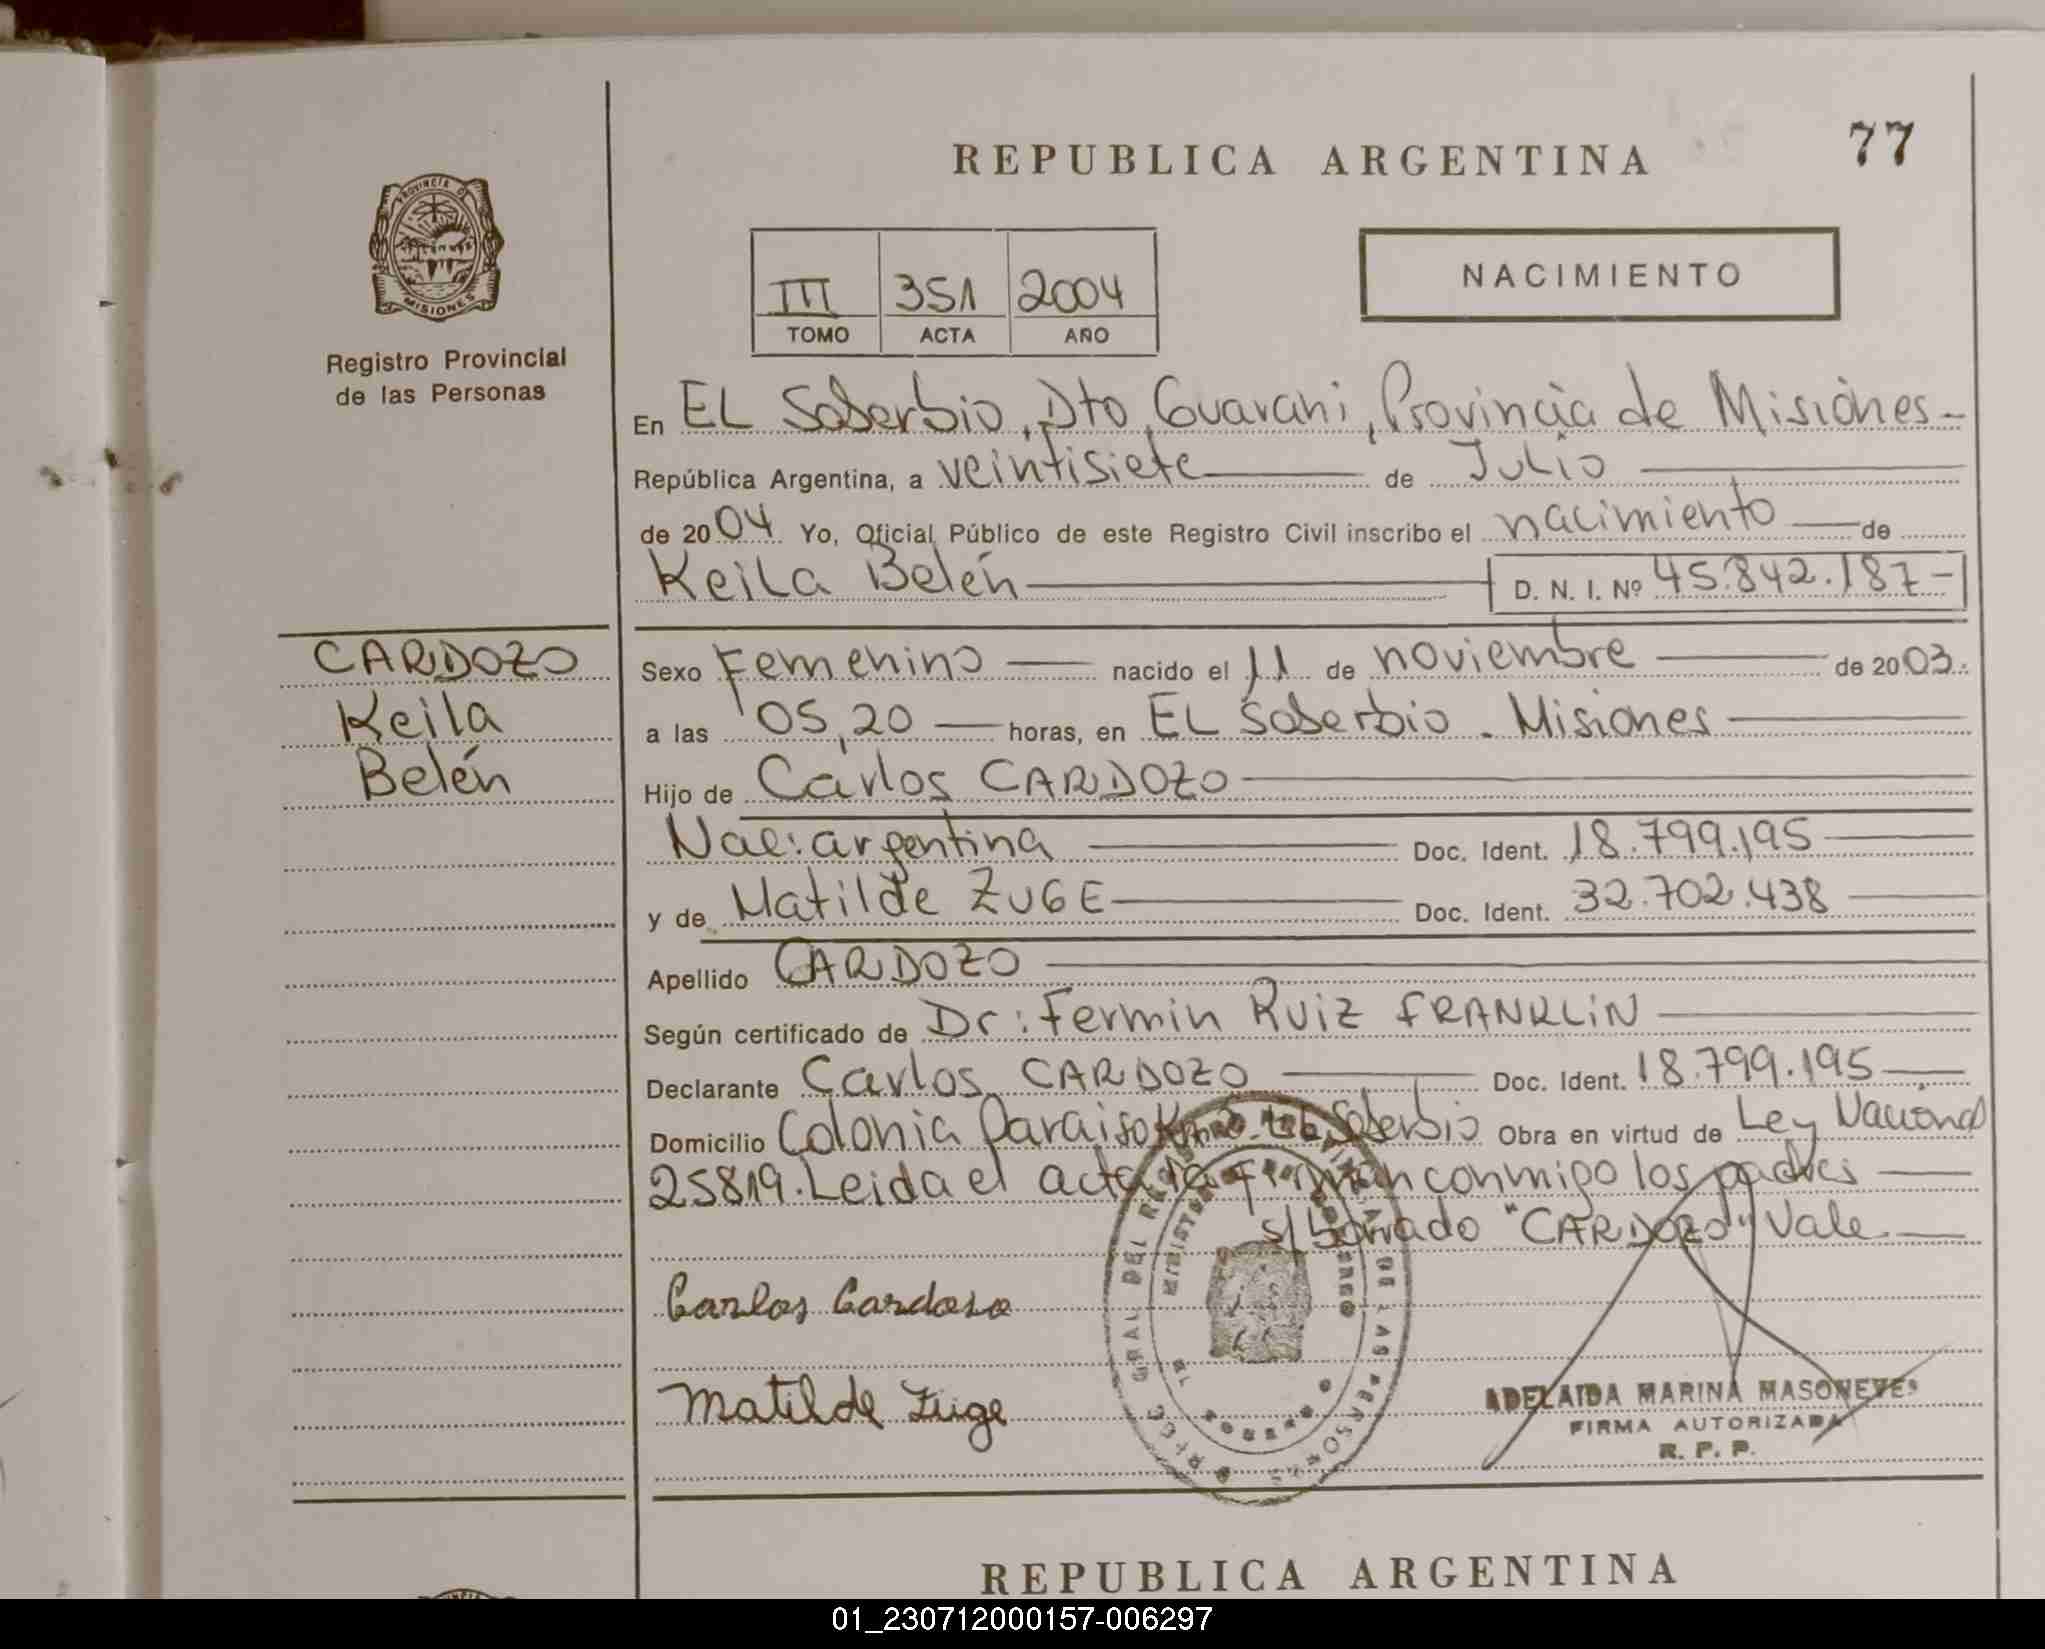 77
REPUBLICA ARGENTINA
PROVINCIA DE
MISIONES
Registro Provincial
de las Personas
NACIMIENTO
III 351 2004
TOMO ACTA AÑO
En EL Soberbio, Dto, Guarani, Provincia de Misiones
República Argentina, a veintisiete de Julio
de 2004 Yo, Oficial Público de este Registro Civil inscribo el nacimiento de
Keila Belén D. N. I. Nº 45.842.187
CARDOZO
Keila
Belén
Sexo Femenino nacido el 11 de noviembre de 2003.
a las 05,20 horas, en EL Soberbio - Misiones
Hijo de Carlos CARDOZO
Nac: argentina Doc. Ident. 18.799.195
y de Matilde ZUGE Doc. Ident. 32.702.438
Apellido CARDOZO
Según certificado de Dr: Fermin Ruiz FRANKLIN
Declarante Carlos CARDOZO Doc. Ident. 18.799.195
Domicilio Colonia Paraiso Soberbio Obra en virtud de Ley Nacional
25819. Leida el acta la firman conmigo los padres
s/ borrado "CARDOZO" Vale
Carlos Cardoso
Matilde Zuge
ADELAIDA MARINA MASONEVES
FIRMA AUTORIZADA
R. P. P.
REPUBLICA ARGENTINA
01_230712000157-006297